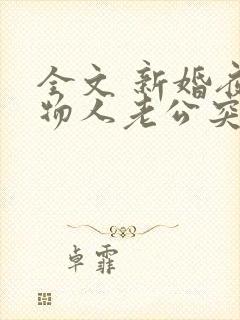 全文 新婚夜
物人老公突
卓霏